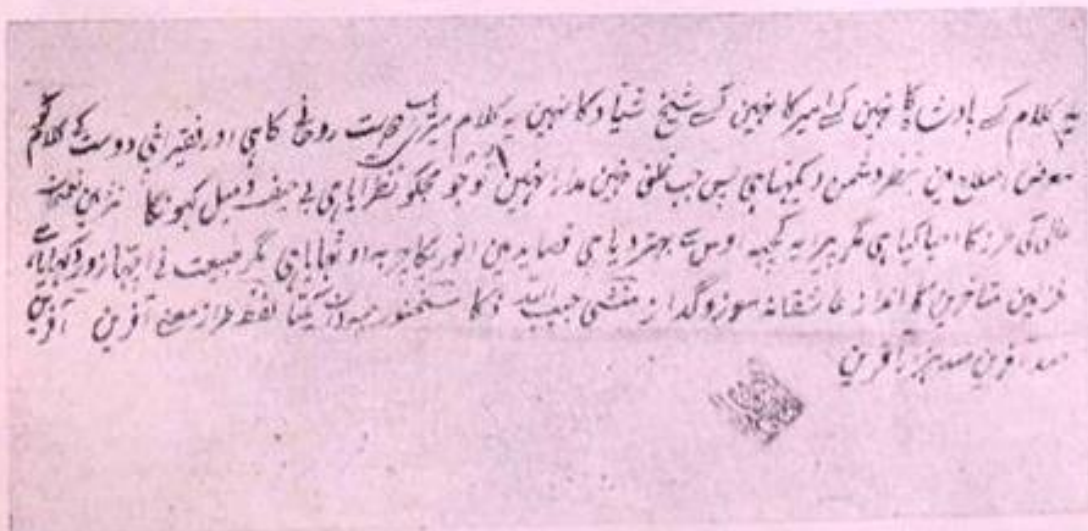 یہ کلام کسے بادشاہ کا نہین کسے امیر کا نہین کسے شیخ شیاد کا نہین یہ کلام میرے ایک دوست روحانی کا ہی اور فقیر اپنی دوست کے کلام کو
معرض اصلاح مین بنظر دشمن دیکہتا ہی پس جب تملق نہین مدارا نہین تو جو مجکو نظر آیا ہی بے حیف و میل کہونگا نثر مین نعمتخان
عالی کی طرز کا احیا کیا ہی مگر پیرایہ کچہہ اوس سے بہتر دیا ہی قصاید مین انوری کا چربہ اوتہایا ہی مگر طبیعت نے اچہا زور دکہایا ہے
غزل مین متاخرین کا انداز عاشقانہ سوز و گداز منشی حبیب اللہ ذکا سخنور ہمہ دان یکتا لفظ طراز معنے آفرین آفرین
صد آفرین صد ہزار آفرین